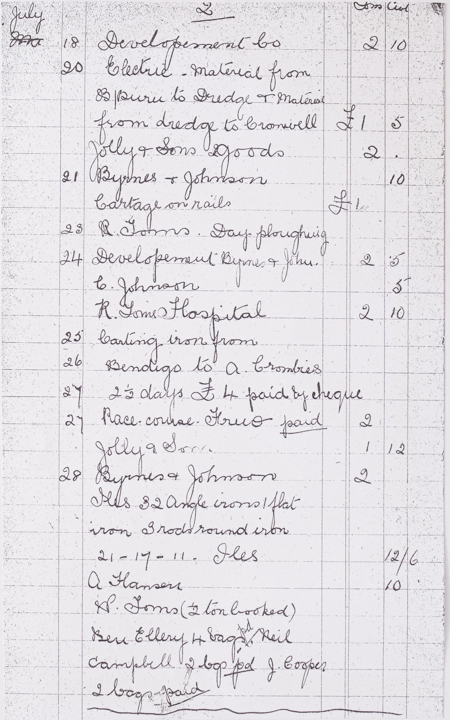 2 Tons Cwt
July
18 Developement Co 2 10
20 Electric - Material from
B/Buru to Dredge & Material
from dredge to Cromwell £1 5
Jolly & Sons Goods 2 .
21 Byrnes & Johnson 10
Cartage on rails £1
23 R. Toms. Day ploughing
24 Developement Byrnes & John. 2 5
C. Johnson 5
R. Toms Hospital 2 10
25 Carting iron from
26 Bendigo to A. Crombies
27 2½ days £4 paid by cheque
27 Race-course. paid 2
Jolly & Son. 1 12
28 Byrnes & Johnson 2
Iles 32 Angle irons 1 flat
iron 3 rods round iron
21-17-11. Iles 12/6
A Hansen 10
N. Toms (½ ton booked)
Ben Ellery 4 bags pd Neil
Campbell 2 bgs pd J. Cooper
2 bags paid